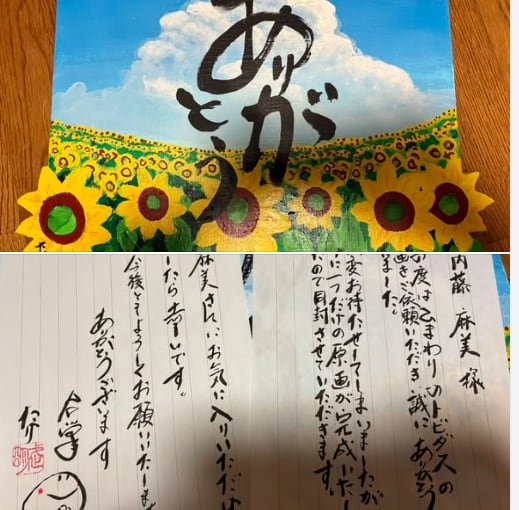 ありがとう
内藤 麻美 様
の度はひまわりのトビダスの
描きご依頼いただき誠にありがとう
ました。
変お待たせしてしまいましたが
に一つだけの原画が完成いたし
たので同封させていただきます。
麻美さんに、お気に入りいただけ
したら幸いです。
今後ともよろしくお願いいたしま
ありがとうございます
合掌